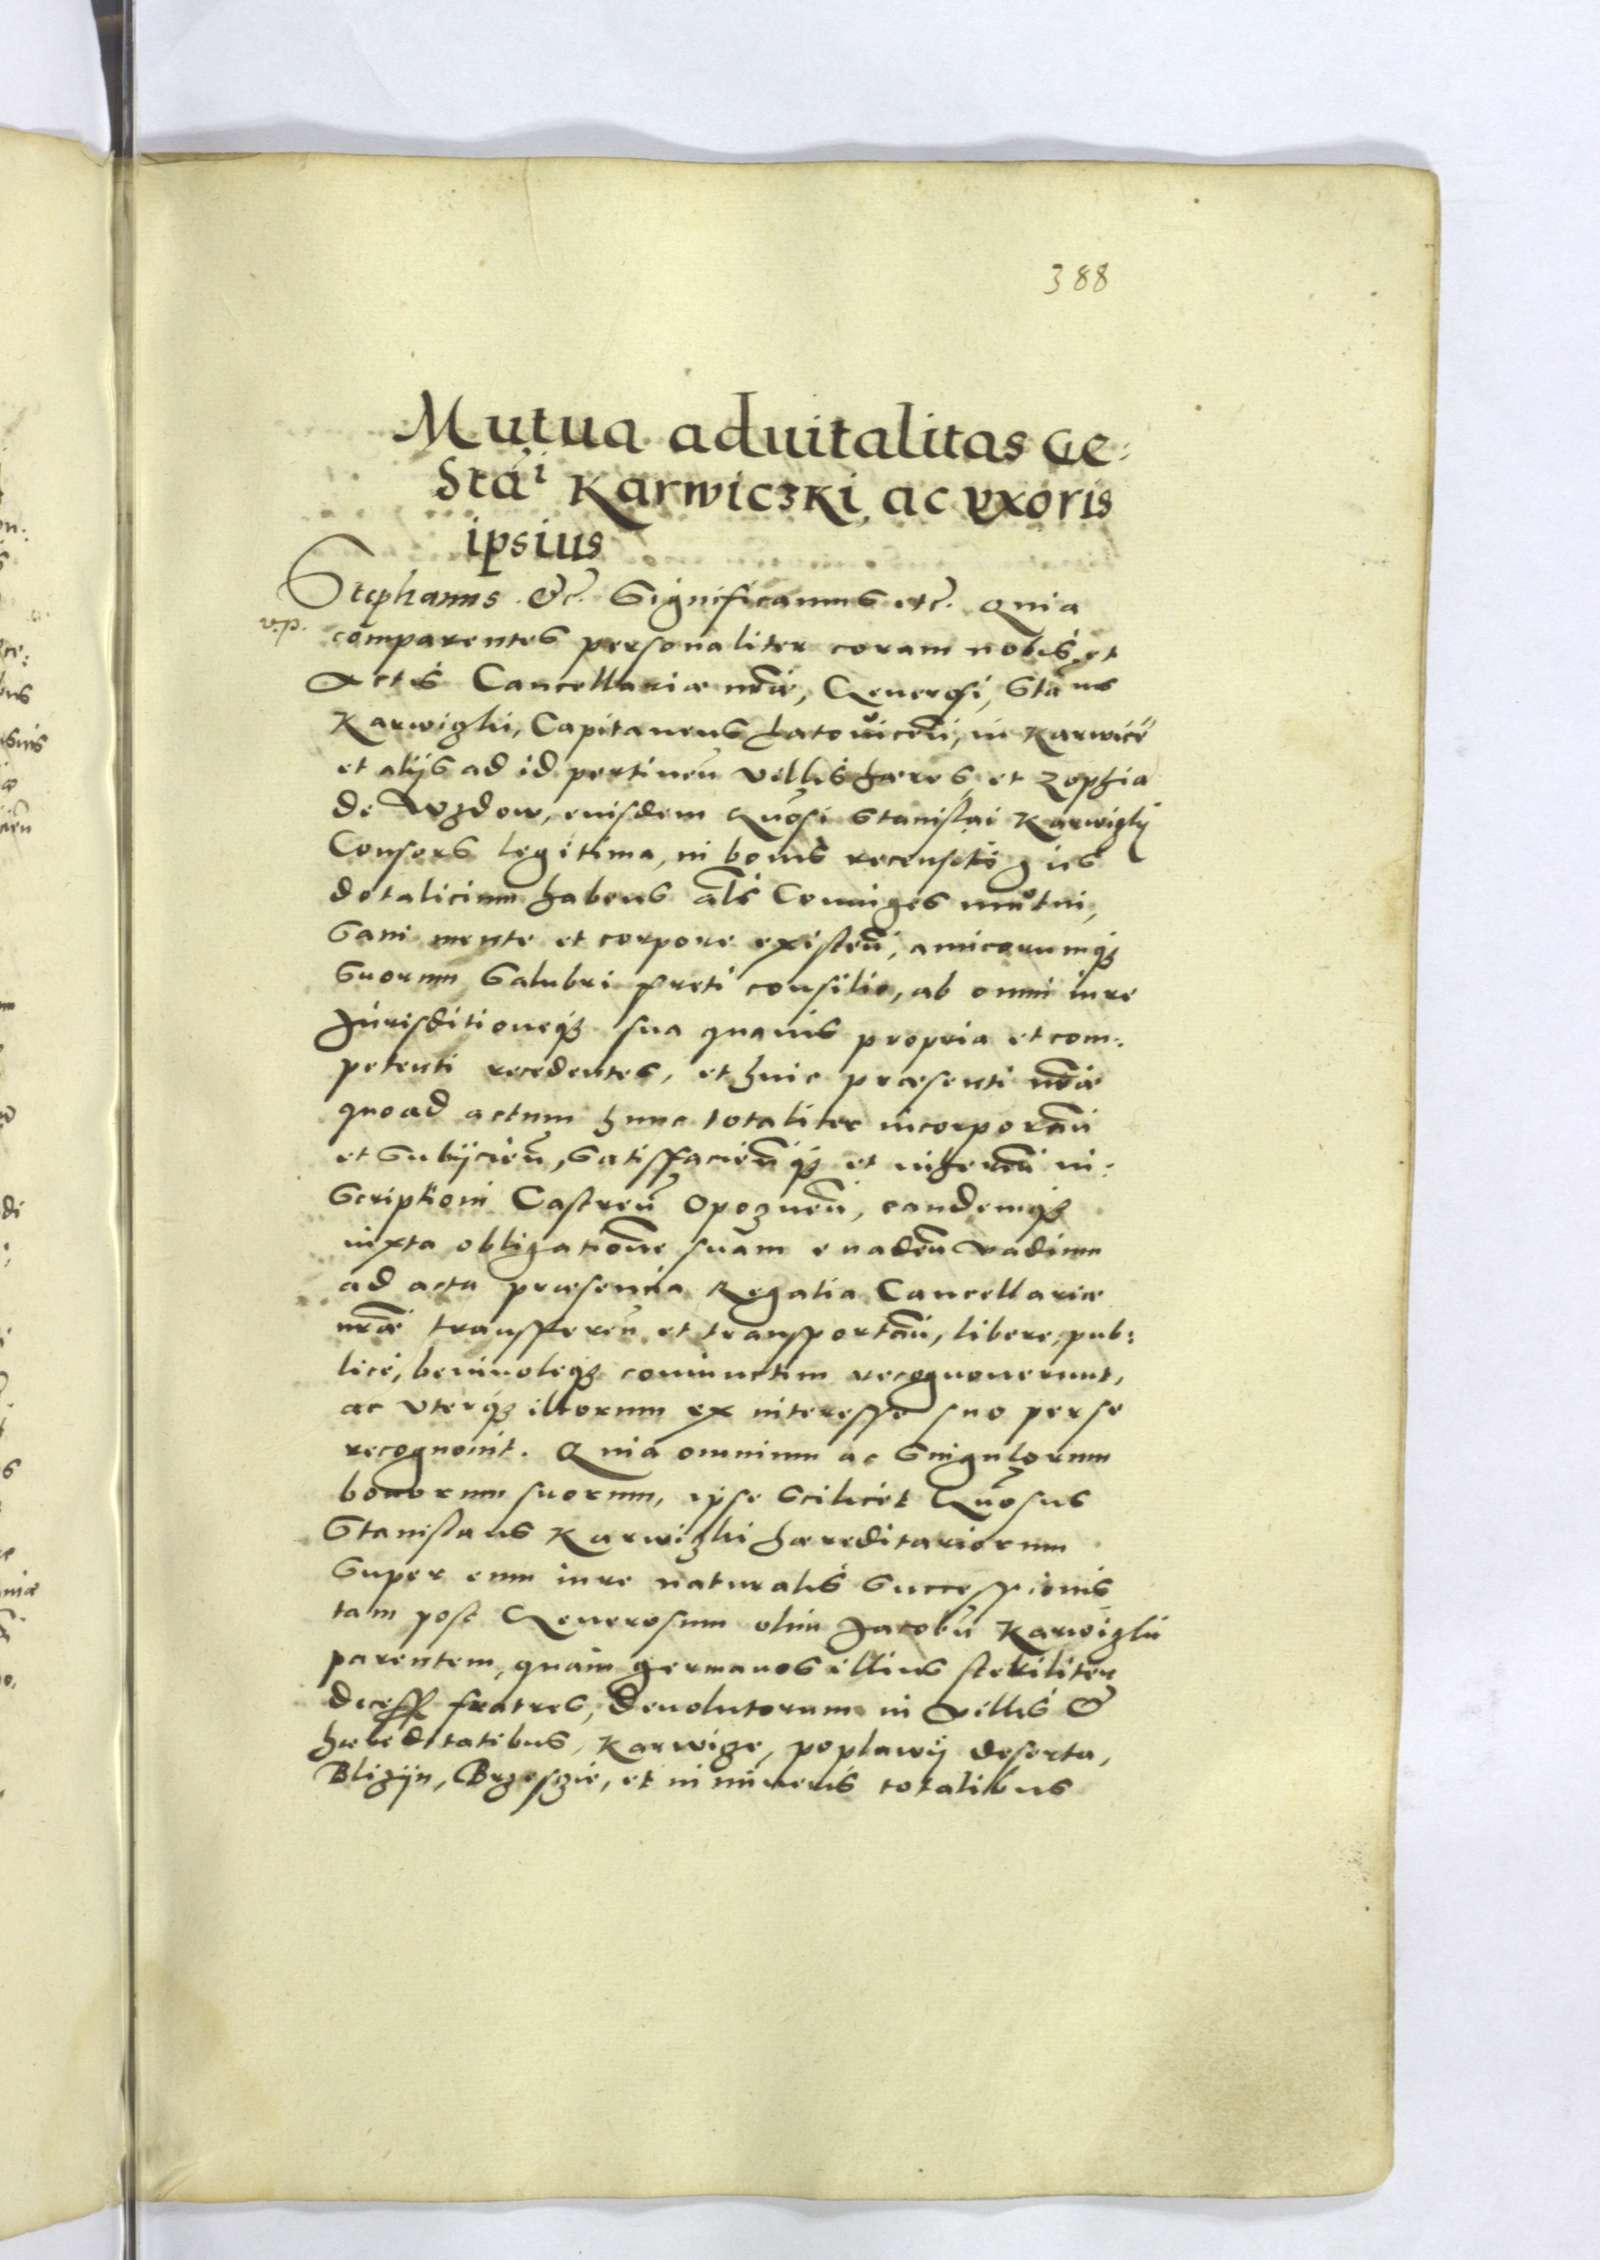 388
Mutua aduitalitas Ge:
Stãi Karwiczki, ac vxoris
ipsius
Stephanus &c. Significamus etc. Quia
v.p.
comparentes personaliter coram nobis et
Actis Cancellariæ nrãe, Generosi, Stãus
Karwiczki, Capitaneus Latowiceñ, in Karwicze
et alijs ad id pertineñ villis hæres, et Zophia
de Wzdow, eiusdem Gñosi Stanislai Karwiczkÿ
Consors legitima, in bonis recensitis ius
dotalicium habens als Coniuges mutui,
Sani mente et corpore existeñ, amicorumq3
Suorum Salubri freti consilio, ab omni iure
Jurisditioneq3 sua quauis propria et com:
petenti recedentes, et huic præsenti nrãe
quoad actum hunc totaliter incorporañ
et Subijcieñ, Satisfacieñq3 et inhereñ in:
Scriptioni Castreñ Opoczneñ, eandemq3
iuxta obligatione suam euadeñ vadium
ad acta præsentia Regalia Cancellariæ
nrãe transfereñ et transportañ, libere, pub:
lice, beniuoleq3 coniunctim recognouerunt,
ac vterq3 illorum ex interesse suo per se
recognouit. Quia omnium ac Singulorum
bonorum suorum, ipse Scilicet Gñosus
Stanislaus Karwiczki hæreditariorum
Super eum iure naturalis Successionis
tam post Generosum olim Jacobũ Karwiczki
parentem, quam germanos illius steriliter
decess fratres, deuolutorum in Villis &
hæreditatibus, Karwicze, poplawÿ deserta,
Bliziÿn, Brzesczie, et in mineris totalibus